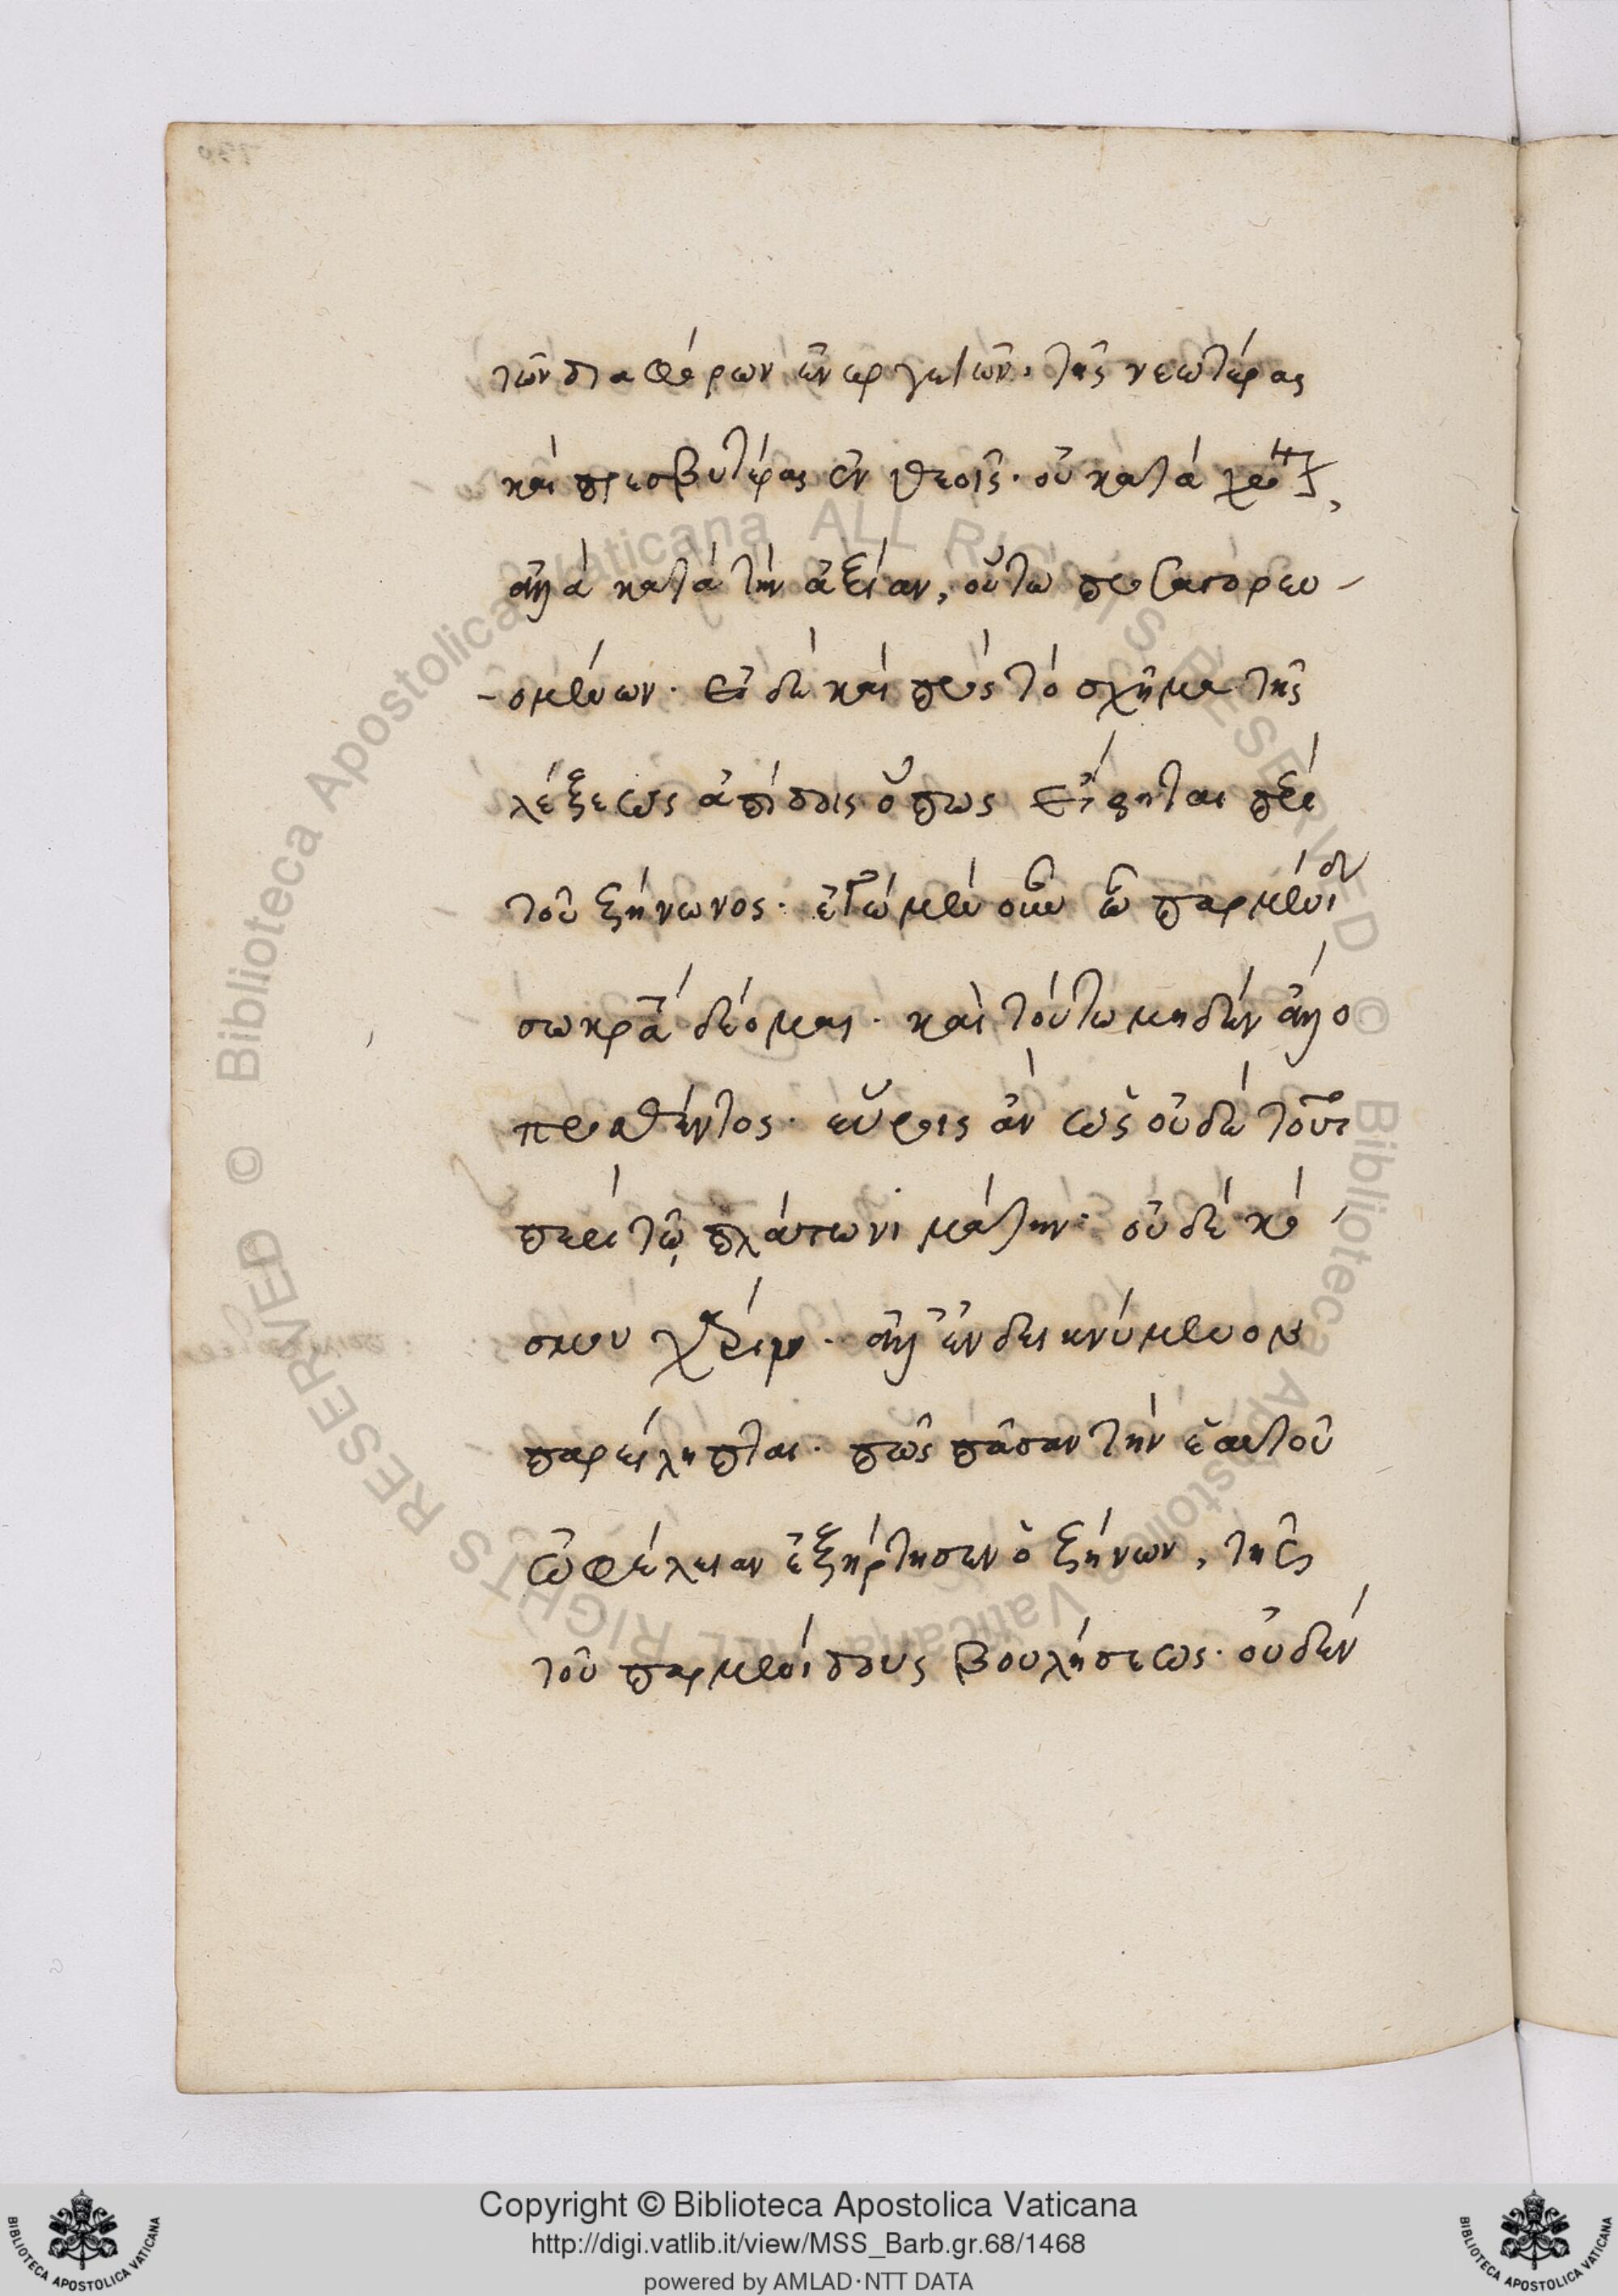 τῶν διαφόρων ἐνεργειῶν· τῆς νεωτέρας
καὶ πρεσβυτέρας ἐν θεοῖς· οὐ κατὰ
ἀλλὰ κατὰ τὴν ἀξίαν, οὕτω προσαγορευ-
-ομένων· εἰ δὲ καὶ πρὸς τὸ σχῆμα τῆς
λέξεως ἀπίδοις ὅπως εἴρηται περὶ
τοῦ ζήνωνος· ἐγὼ μὲν οὖν ὦ παρμενίδη
σωκρά δέομαι· καὶ τούτω μηδὲν ἄλλο
προσθέντος· εὕροις ἂν ὡς οὐδὲ τοῦτο
περὶ τῷ πλάτωνι μάτην· οὐδὲ κό
σμου χάριν· ἀλλ' ἐνδεικνύμενον
παρείληπται· πῶς πᾶσαν τὴν ἑαυτοῦ
ὠφέλειαν ἐξήρτησεν ὁ ζήνων, τῆς
τοῦ παρμενίδους βουλήσεως· οὐδὲν
© Biblioteca Apostolica Vaticana ALL RIGHTS RESERVED
© Biblioteca Apostolica Vaticana ALL RIGHTS RESERVED
Copyright © Biblioteca Apostolica Vaticana
http://digi.vatlib.it/view/MSS_Barb.gr.68/1468
powered by AMLAD·NTT DATA
BIBLIOTECA APOSTOLICA VATICANA
BIBLIOTECA APOSTOLICA VATICANA